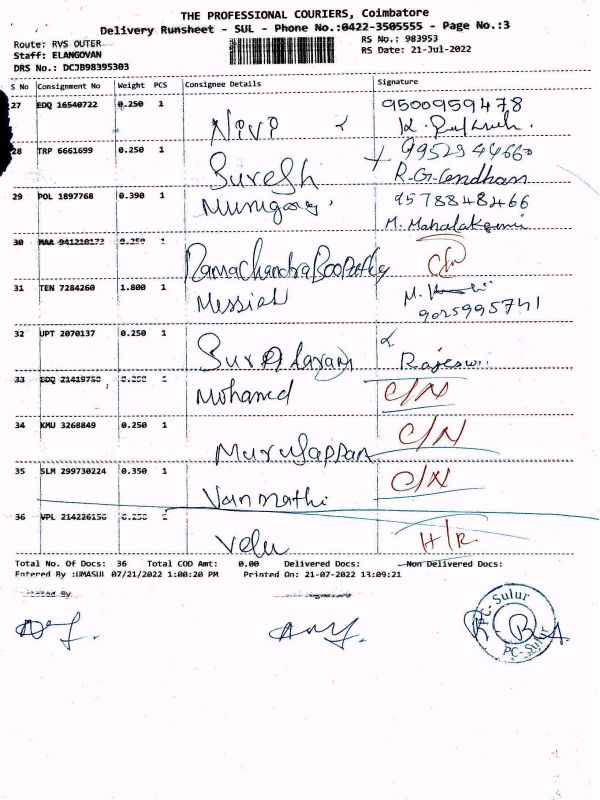 THE PROFESSIONAL COURIERS, Coimbatore
Delivery Runsheet - SUL - Phone No.:0422-3505555 - Page No.:3
Route: RVS OUTER
Staff: ELANGOVAN
DRS No.: DCJB98395303
RS No.: 983953
RS Date: 21-Jul-2022
S No Consignment No Weight PCS Consignee Details Signature
27 EDQ 16540722 0.250 1 Nivi 9500959478
28 TRP 6661699 0.250 1 Suresh 9952944660
R.G.Gandhan
29 POL 1897768 0.390 1 Murugan 9578848466
M. Mahalakshmi
30 MAA 941210173 0.250 1 Ramachandra Boopathy C/N
31 TEN 7284260 1.800 1 Messiah M.
9025995741
32 UPT 2070137 0.250 1 Rajeswi
33 EDQ 21419758 0.250 1 Mohamed C/N
34 KMU 3268849 0.250 1 Murugappan C/N
35 SLM 299730224 0.350 1 Vanmathi C/N
36 VPL 214226156 0.250 1 Velu H/R
Total No. Of Docs: 36 Total COD Amt: 0.00 Delivered Docs: Non Delivered Docs:
Entered By :UMASUL 07/21/2022 1:00:20 PM Printed On: 21-07-2022 13:09:21
PC-Sulur
PC-Sulur